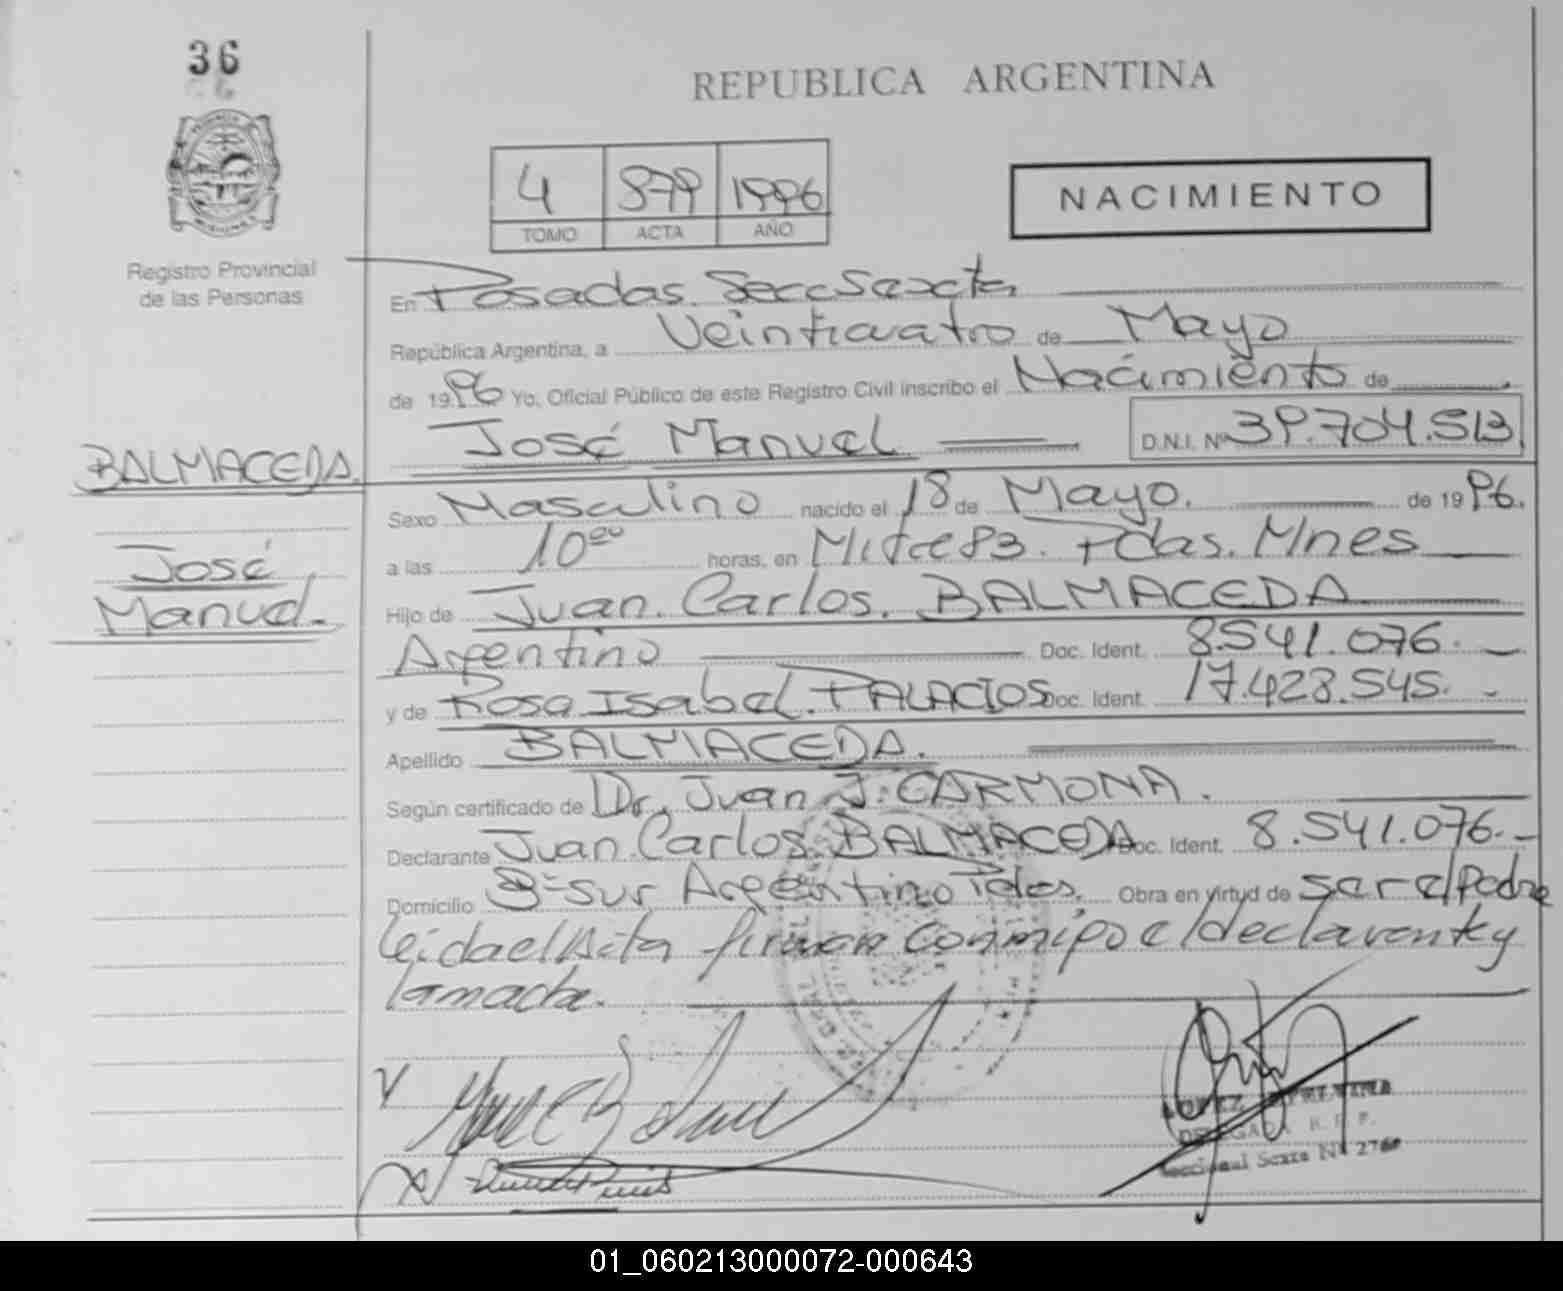 36
REPUBLICA ARGENTINA
4 879 1996
TOMO ACTA AÑO
NACIMIENTO
Registro Provincial
de las Personas
En Posadas. Secc Sexta
República Argentina, a Veinticuatro de Mayo
de 1996 Yo, Oficial Público de este Registro Civil inscribo el Nacimiento de
José Manuel D.N.I. Nº 39.704.513
BALMACEDA.
José
Manuel.
Sexo Masculino nacido el 18 de Mayo. de 1996.
a las 10⁰⁰ horas, en Mitre 83. Pdas. Mnes
Hijo de Juan. Carlos. BALMACEDA
Argentino Doc. Ident. 8.541.076.
y de Rosa Isabel. PALACIOS Doc. Ident. 17.428.545.
Apellido BALMACEDA.
Según certificado de Dr. Juan J. CARMONA.
Declarante Juan Carlos BALMACEDA Doc. Ident. 8.541.076.
Domicilio Bº Sur Argentino Pdas. Obra en virtud de ser el Padre
leida el Acta firman conmigo el declarante y
la madre.
LOPEZ
DELEGADA R. P. P.
Seccional Sexta Nº
01_060213000072-000643